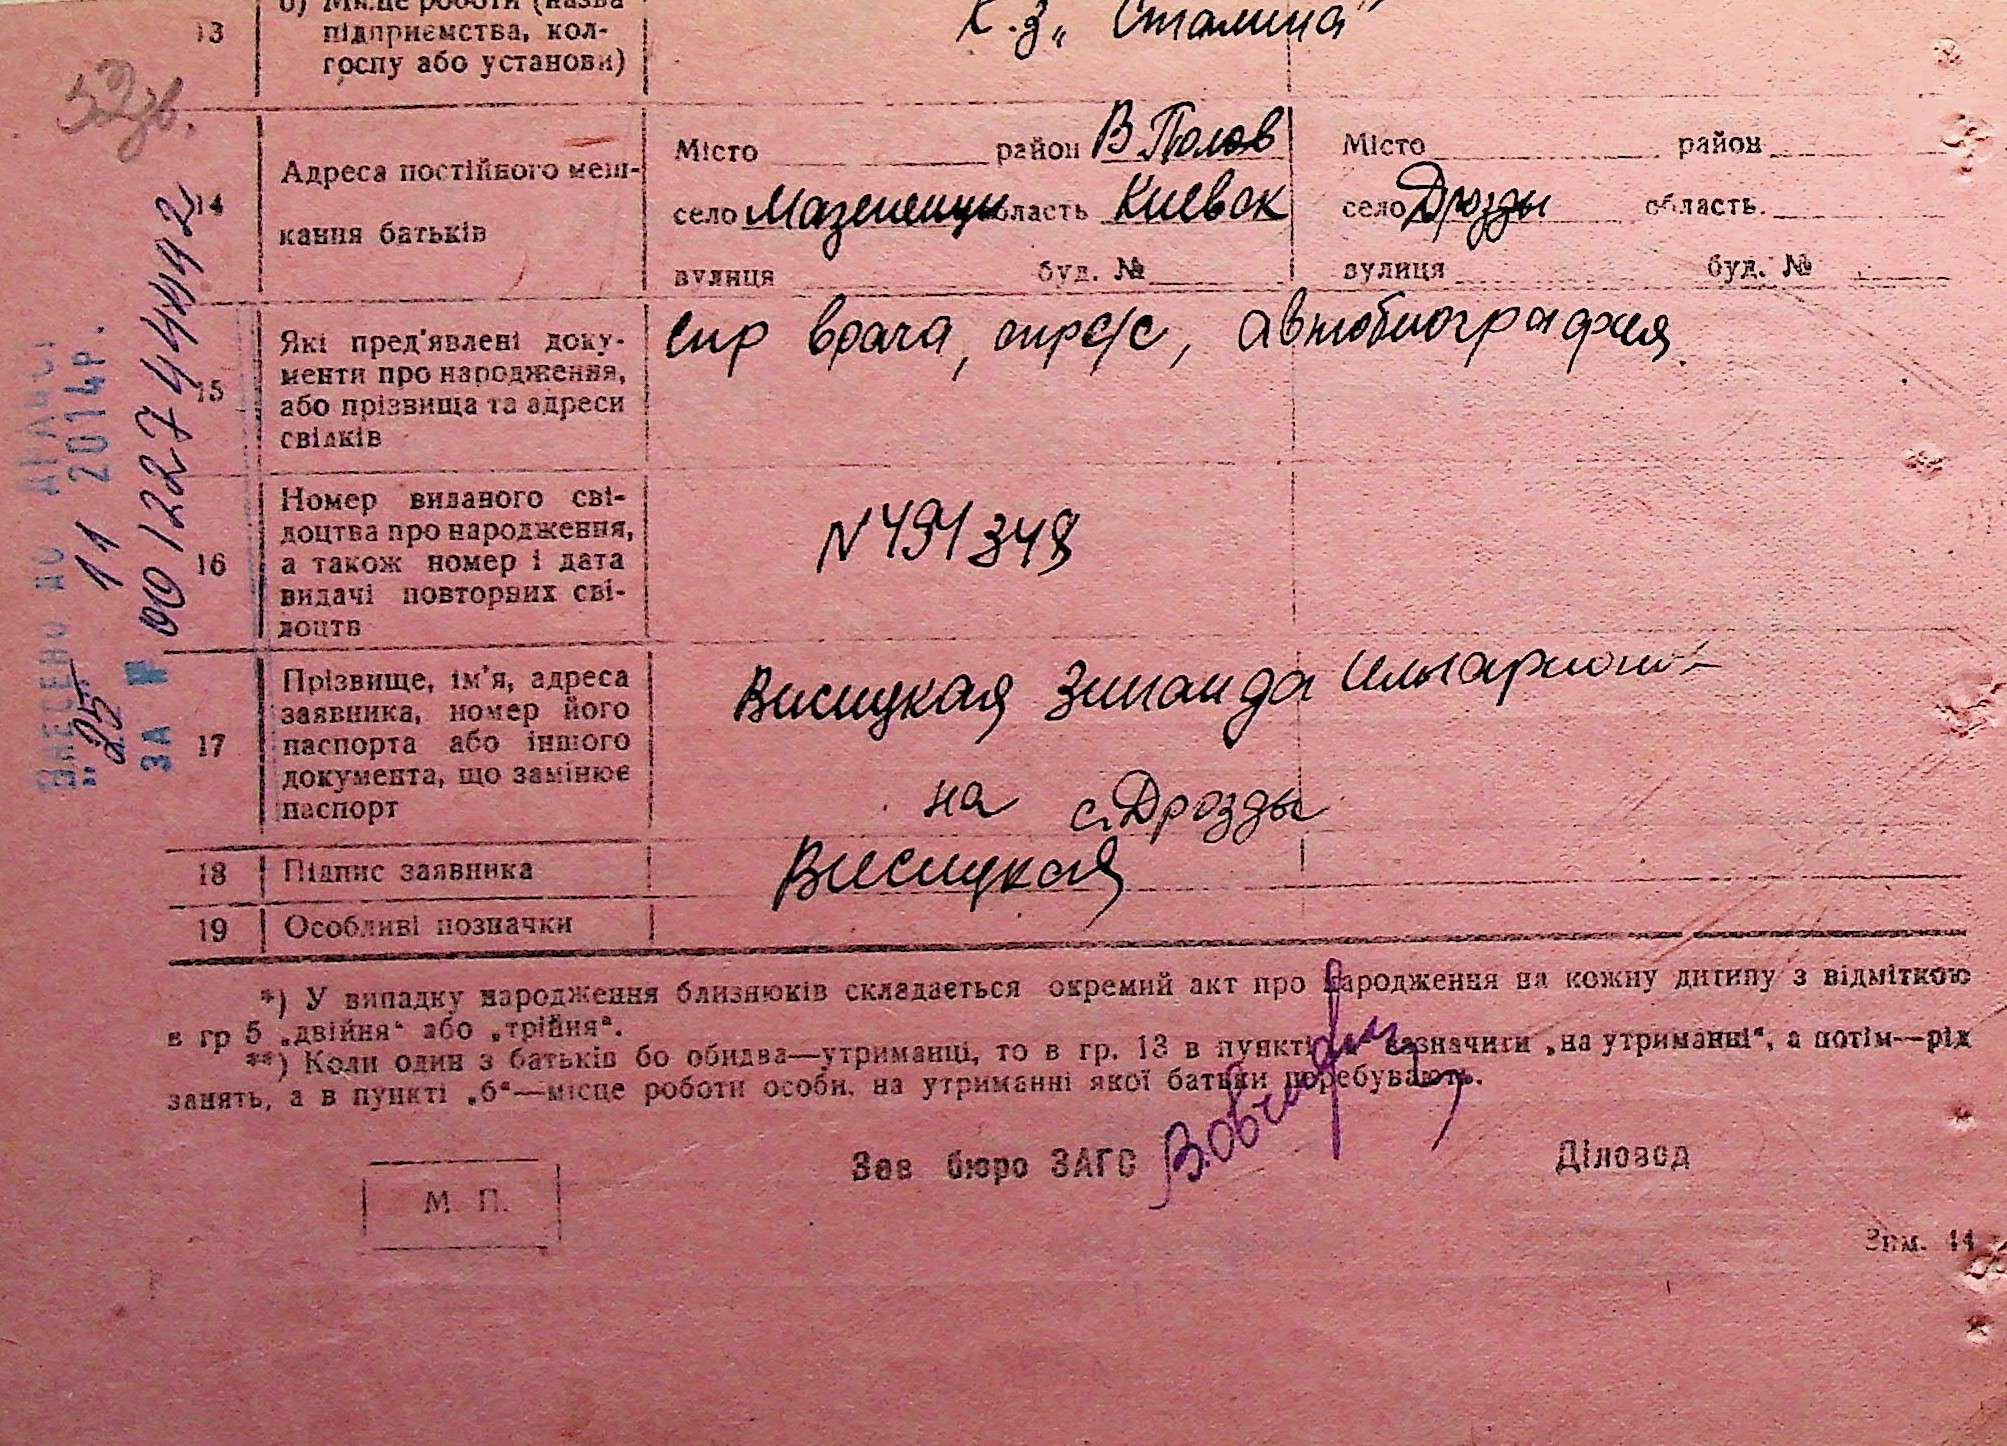 13
б) Місце роботи (назва
підприємства, кол-
госпу або установи)
К.з „Сталина"
52зв.
14
Адреса постійного меш-
кання батьків
Місто район В Полов
село Мазепенцы область Киевск
вулиця буд. №
Місто район
село Дрозды область
вулиця буд. №
15
Які пред'явлені доку-
менти про народження,
або прізвища та адреси
свідків
спр врача, спр с/с, автобиография
16
Номер виданого сві-
доцтва про народження,
а також номер і дата
видачі повторних сві-
доцтв
N 491348
17
Прізвище, ім'я, адреса
заявника, номер його
паспорта або іншого
документа, що замінює
паспорт
Висицкая Зинаида
на с. Дрозды
18
Підпис заявника
Висицкая
19
Особливі позначки
*) У випадку народження близнюків складається окремий акт про народження на кожну дитину з відміткою
в гр 5 „двійня“ або „трійня“.
**) Коли один з батьків бо обидва—утриманці, то в гр. 13 в пункті зазначити „на утриманні“, а потім—рід
занять, а в пункті „б“—місце роботи особи, на утриманні якої батьки поребувають.
М. П.
Зав бюро ЗАГС
Діловод
Зам. 44
ВНЕСЕНО ДО
"25" 11 2014р.
ЗА № 00122744492